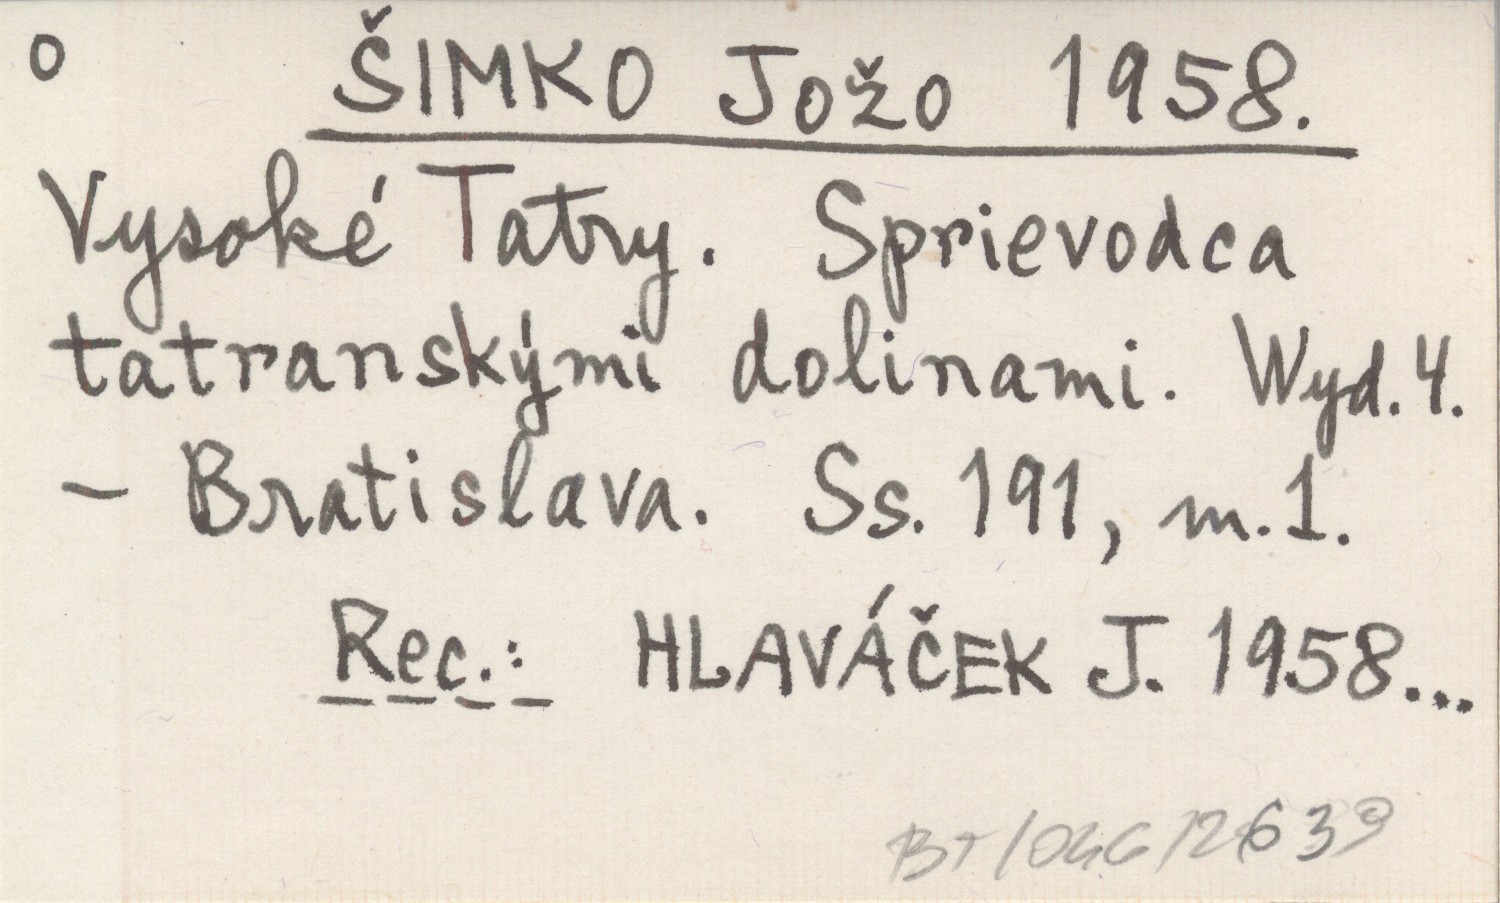 o ŠIMKO Jožo 1958.
Vysoké Tatry. Sprievodca
tatranskými dolinami. Wyd. 4.
- Bratislava. Ss. 191, m. 1.
Rec.: HLAVÁČEK J. 1958...
2639